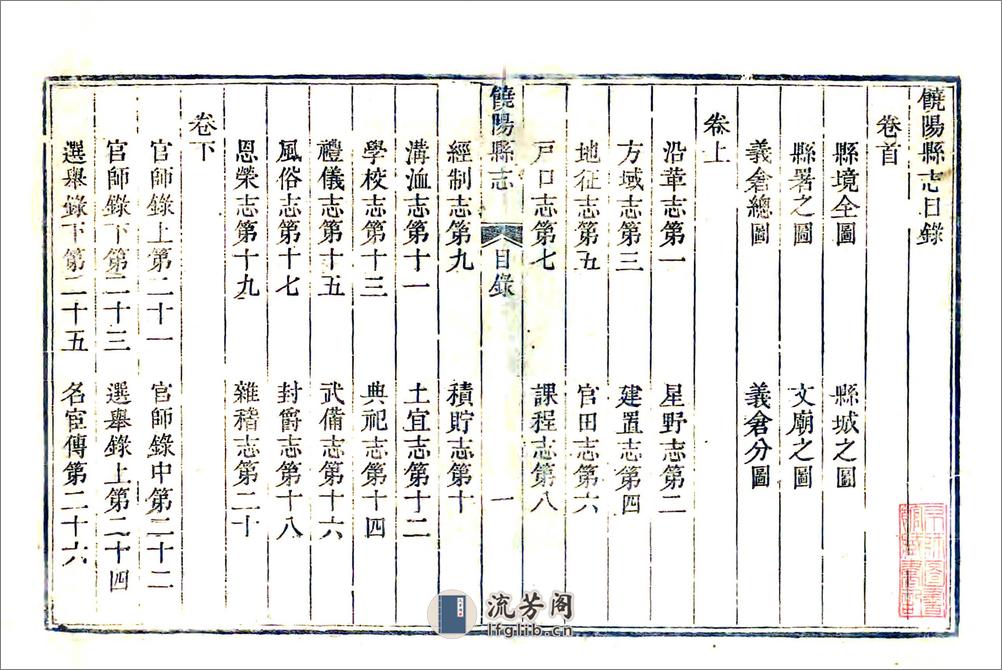 饒陽縣志目錄
卷首
縣境全圖　縣城之圖
縣署之圖　文廟之圖
義倉總圖　義倉分圖
卷上
沿革志第一　星野志第二
方域志第三　建置志第四
地征志第五　官田志第六
戸口志第七　課程志第八
饒陽縣志　目錄　一
經制志第九　積貯志第十
溝洫志第十一　土宜志第十二
學校志第十三　典祀志第十四
禮儀志第十五　武備志第十六
風俗志第十七　封爵志第十八
恩榮志第十九　雜稽志第二十
卷下
官師錄上第二十一　官師錄中第二十二
官師錄下第二十三　選舉錄上第二十四
選舉錄下第二十五　名宦傳第二十六
流芳阁
lfglib.cn